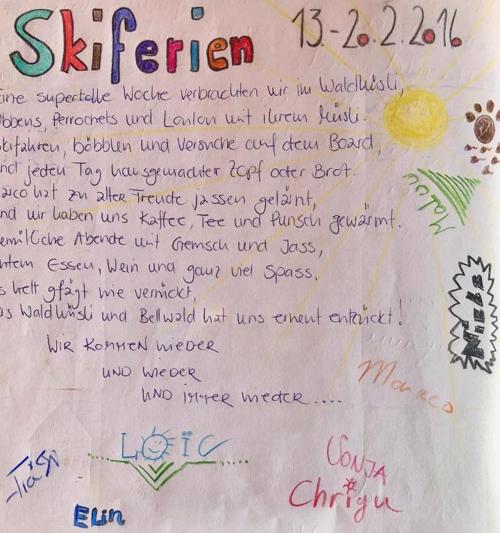 Skiferien 13.-20.2.2016
ine supertolle Woche verbrachten wir im Waldhüsli,
bbens, Perrochets und Lonlon mit ihrem Müsli.
kifahren, böbblen und Versuche auf dem Board,
nd jeden Tag hausgemachter Zopf oder Brot.
arco hat zu aller Freude jassen gelärnt,
nd wir haben uns Kaffee, Tee und Punsch gewärmt.
emütliche Abende mit Gemsch und Jass,
utem Essen, Wein und ganz viel Spass.
s hett gfägt wie verrückt,
as Waldhüsli und Bellwald hat uns erneut entzückt!
WIR KOMMEN WIEDER
UND WIEDER
UND IMMER WIEDER....
Malou
Marco
LOÏC
SONJA
Chrigu
Elin